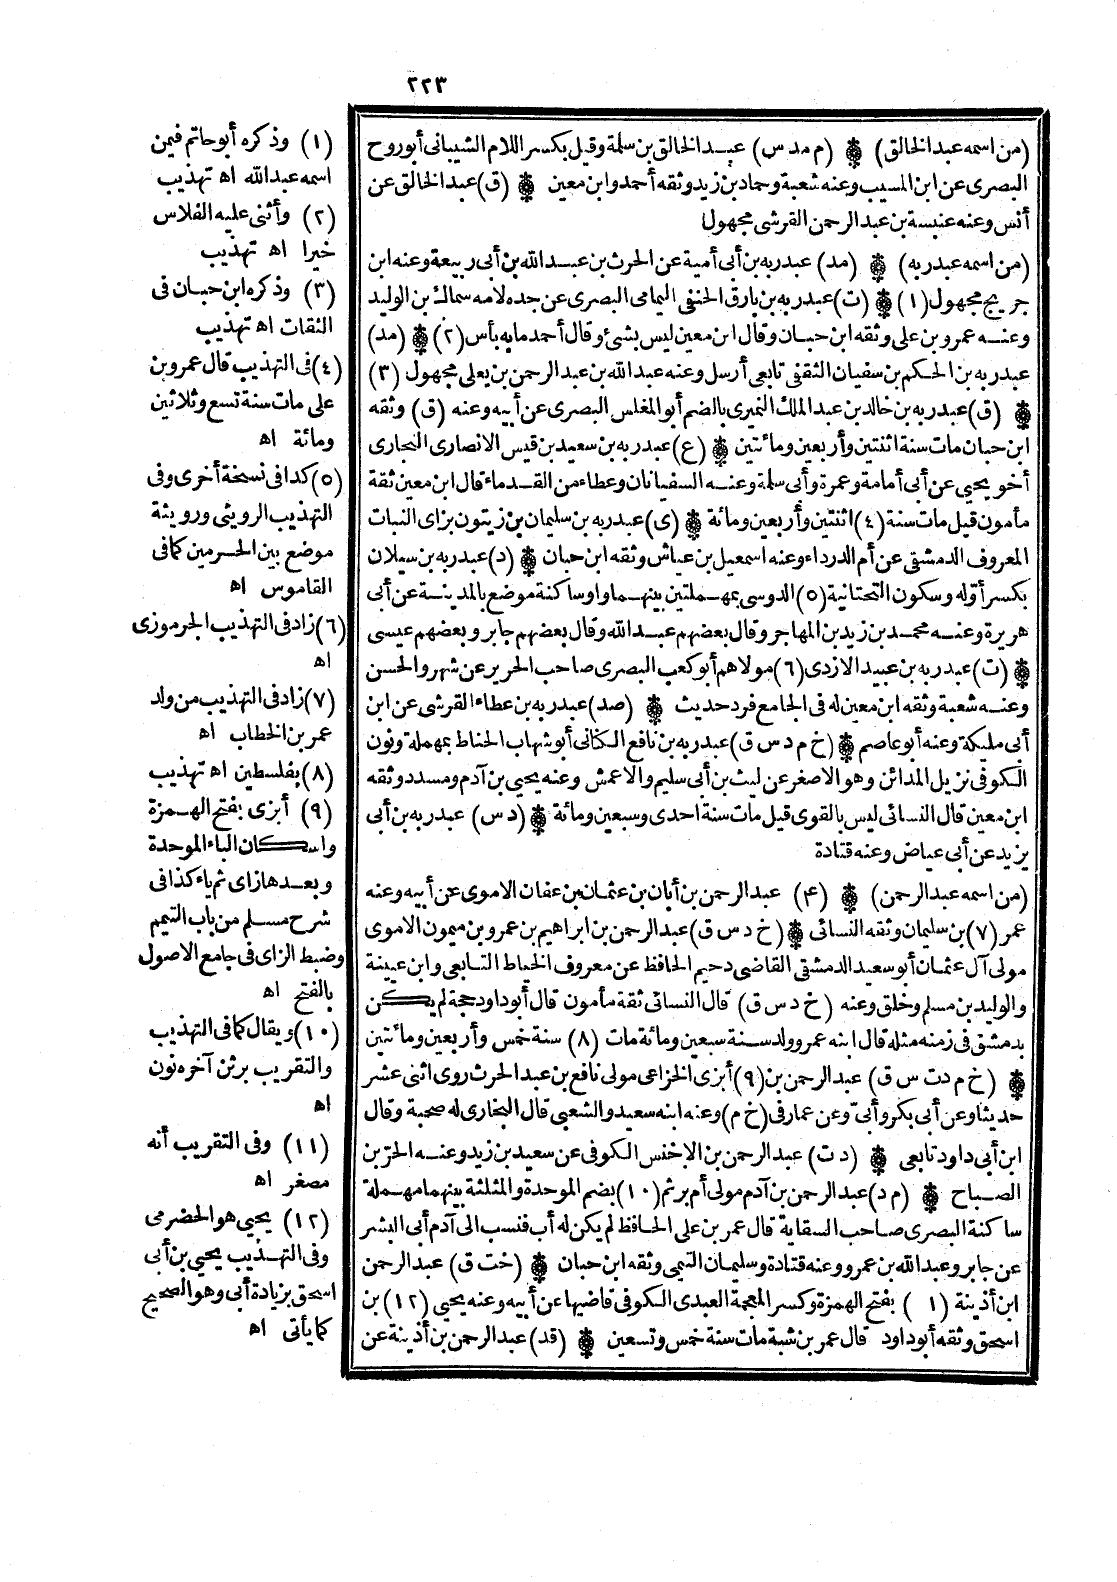 ٢٢٣
(من اسمه عبد الخالق) (م مد س) عبد الخالق بن سلمة وقيل بكسر اللام الشيبانى أبو روح
البصرى عن ابن المسيب وعنه شعبة وحماد بن زيد وثقه أحمد وابن معين (ق) عبد الخالق عن
أنس وعنه عنبسة بن عبد الرحمن القرشى مجهول
(من اسمه عبدربه) (مد) عبدربه بن أبى أمية عن الحرث بن عبد الله بن أبى ربيعة وعنه ابن
جريج مجهول (١) (ت) عبدربه بن بارق الحنفى اليمامى البصرى عن جده لامه سماك بن الوليد
وعنه عمرو بن على وثقه ابن حبان وقال ابن معين ليس بشئ وقال أحمد ما به بأس (٢) (مد)
عبدربه بن الحكم بن سفيان الثقفى تابعى أرسل وعنه عبد الله بن عبد الرحمن بن يعلى مجهول (٣)
(ق) عبدربه بن خالد بن عبد الملك النميرى بالضم أبو المغلس البصرى عن أبيه وعنه (ق) وثقه
ابن حبان مات سنة اثنتين وأربعين ومائتين (ع) عبدربه بن سعيد بن قيس الانصارى النجارى
أخو يحيى عن أبى أمامة وعمرة وأبى سلمة وعنه السفيانان وعطاء من القدماء قال ابن معين ثقة
مأمون قيل مات سنة (٤) اثنتين وأربعين ومائة (ى) عبدربه بن سليمان بن زيتون بزاى النبات
المعروف الدمشقى عن أم الدرداء وعنه اسمعيل بن عياش وثقه ابن حبان (د) عبدربه بن سيلان
بكسر أوله وسكون التحتانية (٥) الدوسى بمهملتين بينهما واو ساكنة موضع بالمدينة عن أبى
هريرة وعنه محمد بن زيد بن المهاجر وقال بعضهم عبد الله وقال بعضهم جابر وبعضهم عيسى
(ت) عبدربه بن عبيد الازدى (٦) مولاهم أبو كعب البصرى صاحب الحرير عن شهر والحسن
وعنه شعبة وثقه ابن معين له فى الجامع فرد حديث (صد) عبدربه بن عطاء القرشى عن ابن
أبى مليكة وعنه أبو عاصم (خ م د س ق) عبدربه بن نافع الكنانى أبو شهاب الحناط بمهملة ونون
الكوفى نزيل المدائن وهو الاصغر عن ليث بن أبى سليم والاعمش وعنه يحيى بن آدم ومسدد وثقه
ابن معين قال النسائى ليس بالقوى قيل مات سنة احدى وسبعين ومائة (د س) عبدربه بن أبى
يزيد عن أبى عياض وعنه قتادة
(من اسمه عبد الرحمن) (٤) عبد الرحمن بن أبان بن عثمان بن عفان الاموى عن أبيه وعنه
عمر (٧) بن سليمان وثقه النسائى (خ د س ق) عبد الرحمن بن ابراهيم بن عمرو بن ميمون الاموى
مولى آل عثمان أبو سعيد الدمشقى القاضى دحيم الحافظ عن معروف الخياط التابعى وابن عيينة
والوليد بن مسلم وخلق وعنه (خ د س ق) قال النسائى ثقة مأمون قال أبو داود حجة لم يكن
بدمشق فى زمنه مثله قال ابنه عمرو ولد سنة سبعين ومائة مات (٨) سنة خمس وأربعين ومائتين
(خ م د ت س ق) عبد الرحمن بن (٩) أبزى الخزاعى مولى نافع بن عبد الحرث روى اثنى عشر
حديثا وعن أبى بكر وأبىّ وعن عمار فى (خ م) وعنه ابنه سعيد والشعبى قال البخارى له صحبة وقال
ابن أبى داود تابعى (د ت) عبد الرحمن بن الاخنس الكوفى عن سعيد بن زيد وعنه الحرّ بن
الصباح (م د) عبد الرحمن بن آدم مولى أم برثم (١٠) بضم الموحدة والمثلثة بينهما مهملة
ساكنة البصرى صاحب السقاية قال عمر بن على الحافظ لم يكن له أب فنسب الى آدم أبى البشر
عن جابر وعبد الله بن عمرو وعنه قتادة وسليمان التيمى وثقه ابن حبان (خت ق) عبد الرحمن
ابن أذينة (١ ) بفتح الهمزة وكسر المعجمة العبدى الكوفى قاضيها عن أبيه وعنه يحيى (١٢) بن
اسحق وثقه أبو داود قال عمر بن شبة مات سنة خمس وتسعين (قد) عبد الرحمن بن أذينة عن
(١) وذكره أبو حاتم فيمن
اسمه عبد الله اه تهذيب
(٢) وأثنى عليه الفلاس
خيرا اه تهذيب
(٣) وذكره ابن حبان فى
الثقات اه تهذيب
(٤) فى التهذيب قال عمرو بن
على مات سنة تسع وثلاثين
ومائة اه
(٥) كذا فى نسخة أخرى وفى
التهذيب الرويثى ورويثة
موضع بين الحرمين كما فى
القاموس اه
(٦) زاد فى التهذيب الجرموزى
اه
(٧) زاد فى التهذيب من ولد
عمر بن الخطاب اه
(٨) بفلسطين اه تهذيب
(٩) أبزى بفتح الهمزة
واسكان الباء الموحدة
وبعدها زاى ثم ياء كذا فى
شرح مسلم من باب التيمم
وضبط الزاى فى جامع الاصول
بالفتح اه
(١٠) ويقال كما فى التهذيب
والتقريب برثن آخره نون
اه
(١١) وفى التقريب أنه
مصغر اه
(١٢) يحيى هو الحضرمى
وفى التهذيب يحيى بن أبى
اسحق بزيادة أبى وهو الصحيح
كما يأتى اه